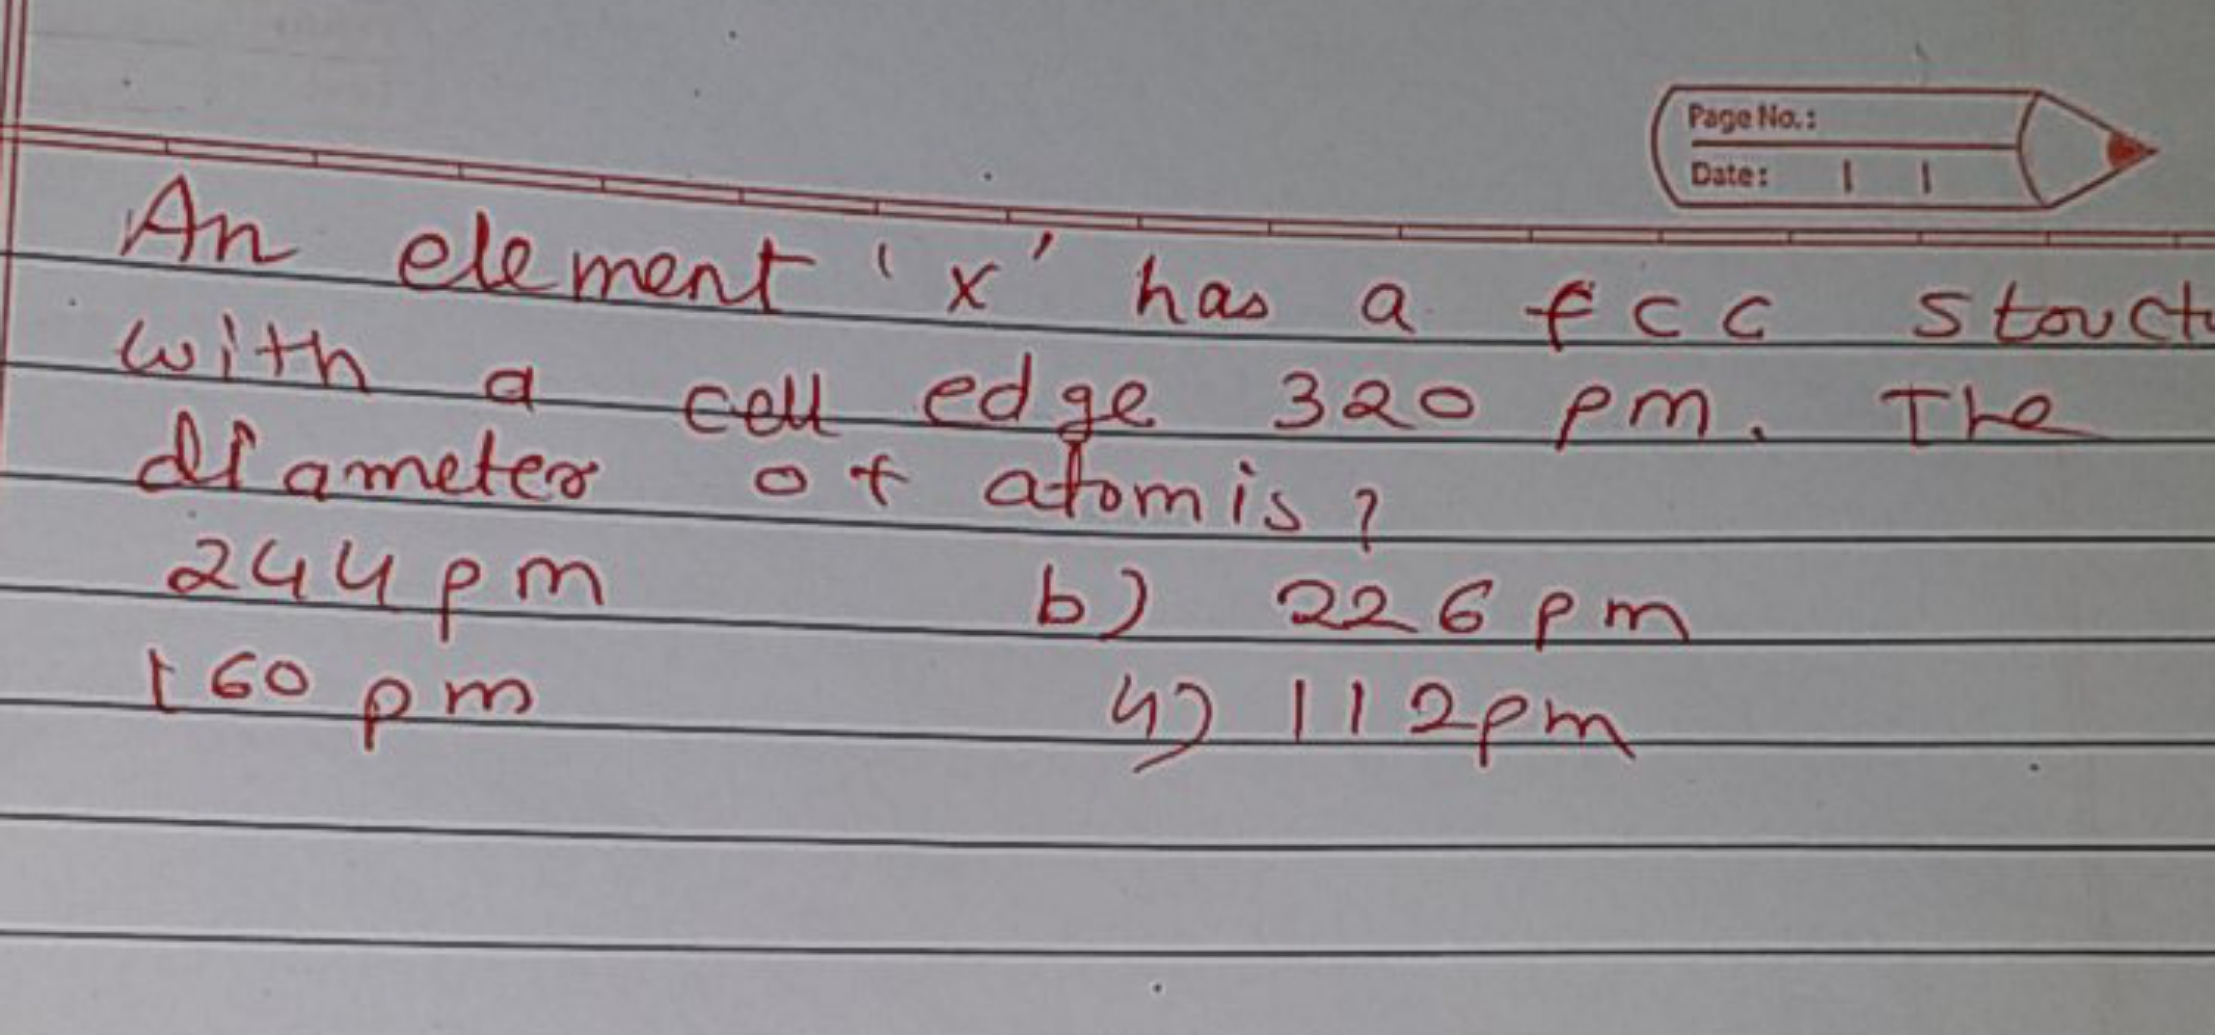 Page No.:
Date:
An element 'x' has a fcc structu
with a cell edge 320 pm. The
diameter of atom is?
244 pm b) 226 pm
160 pm 4) 112pm